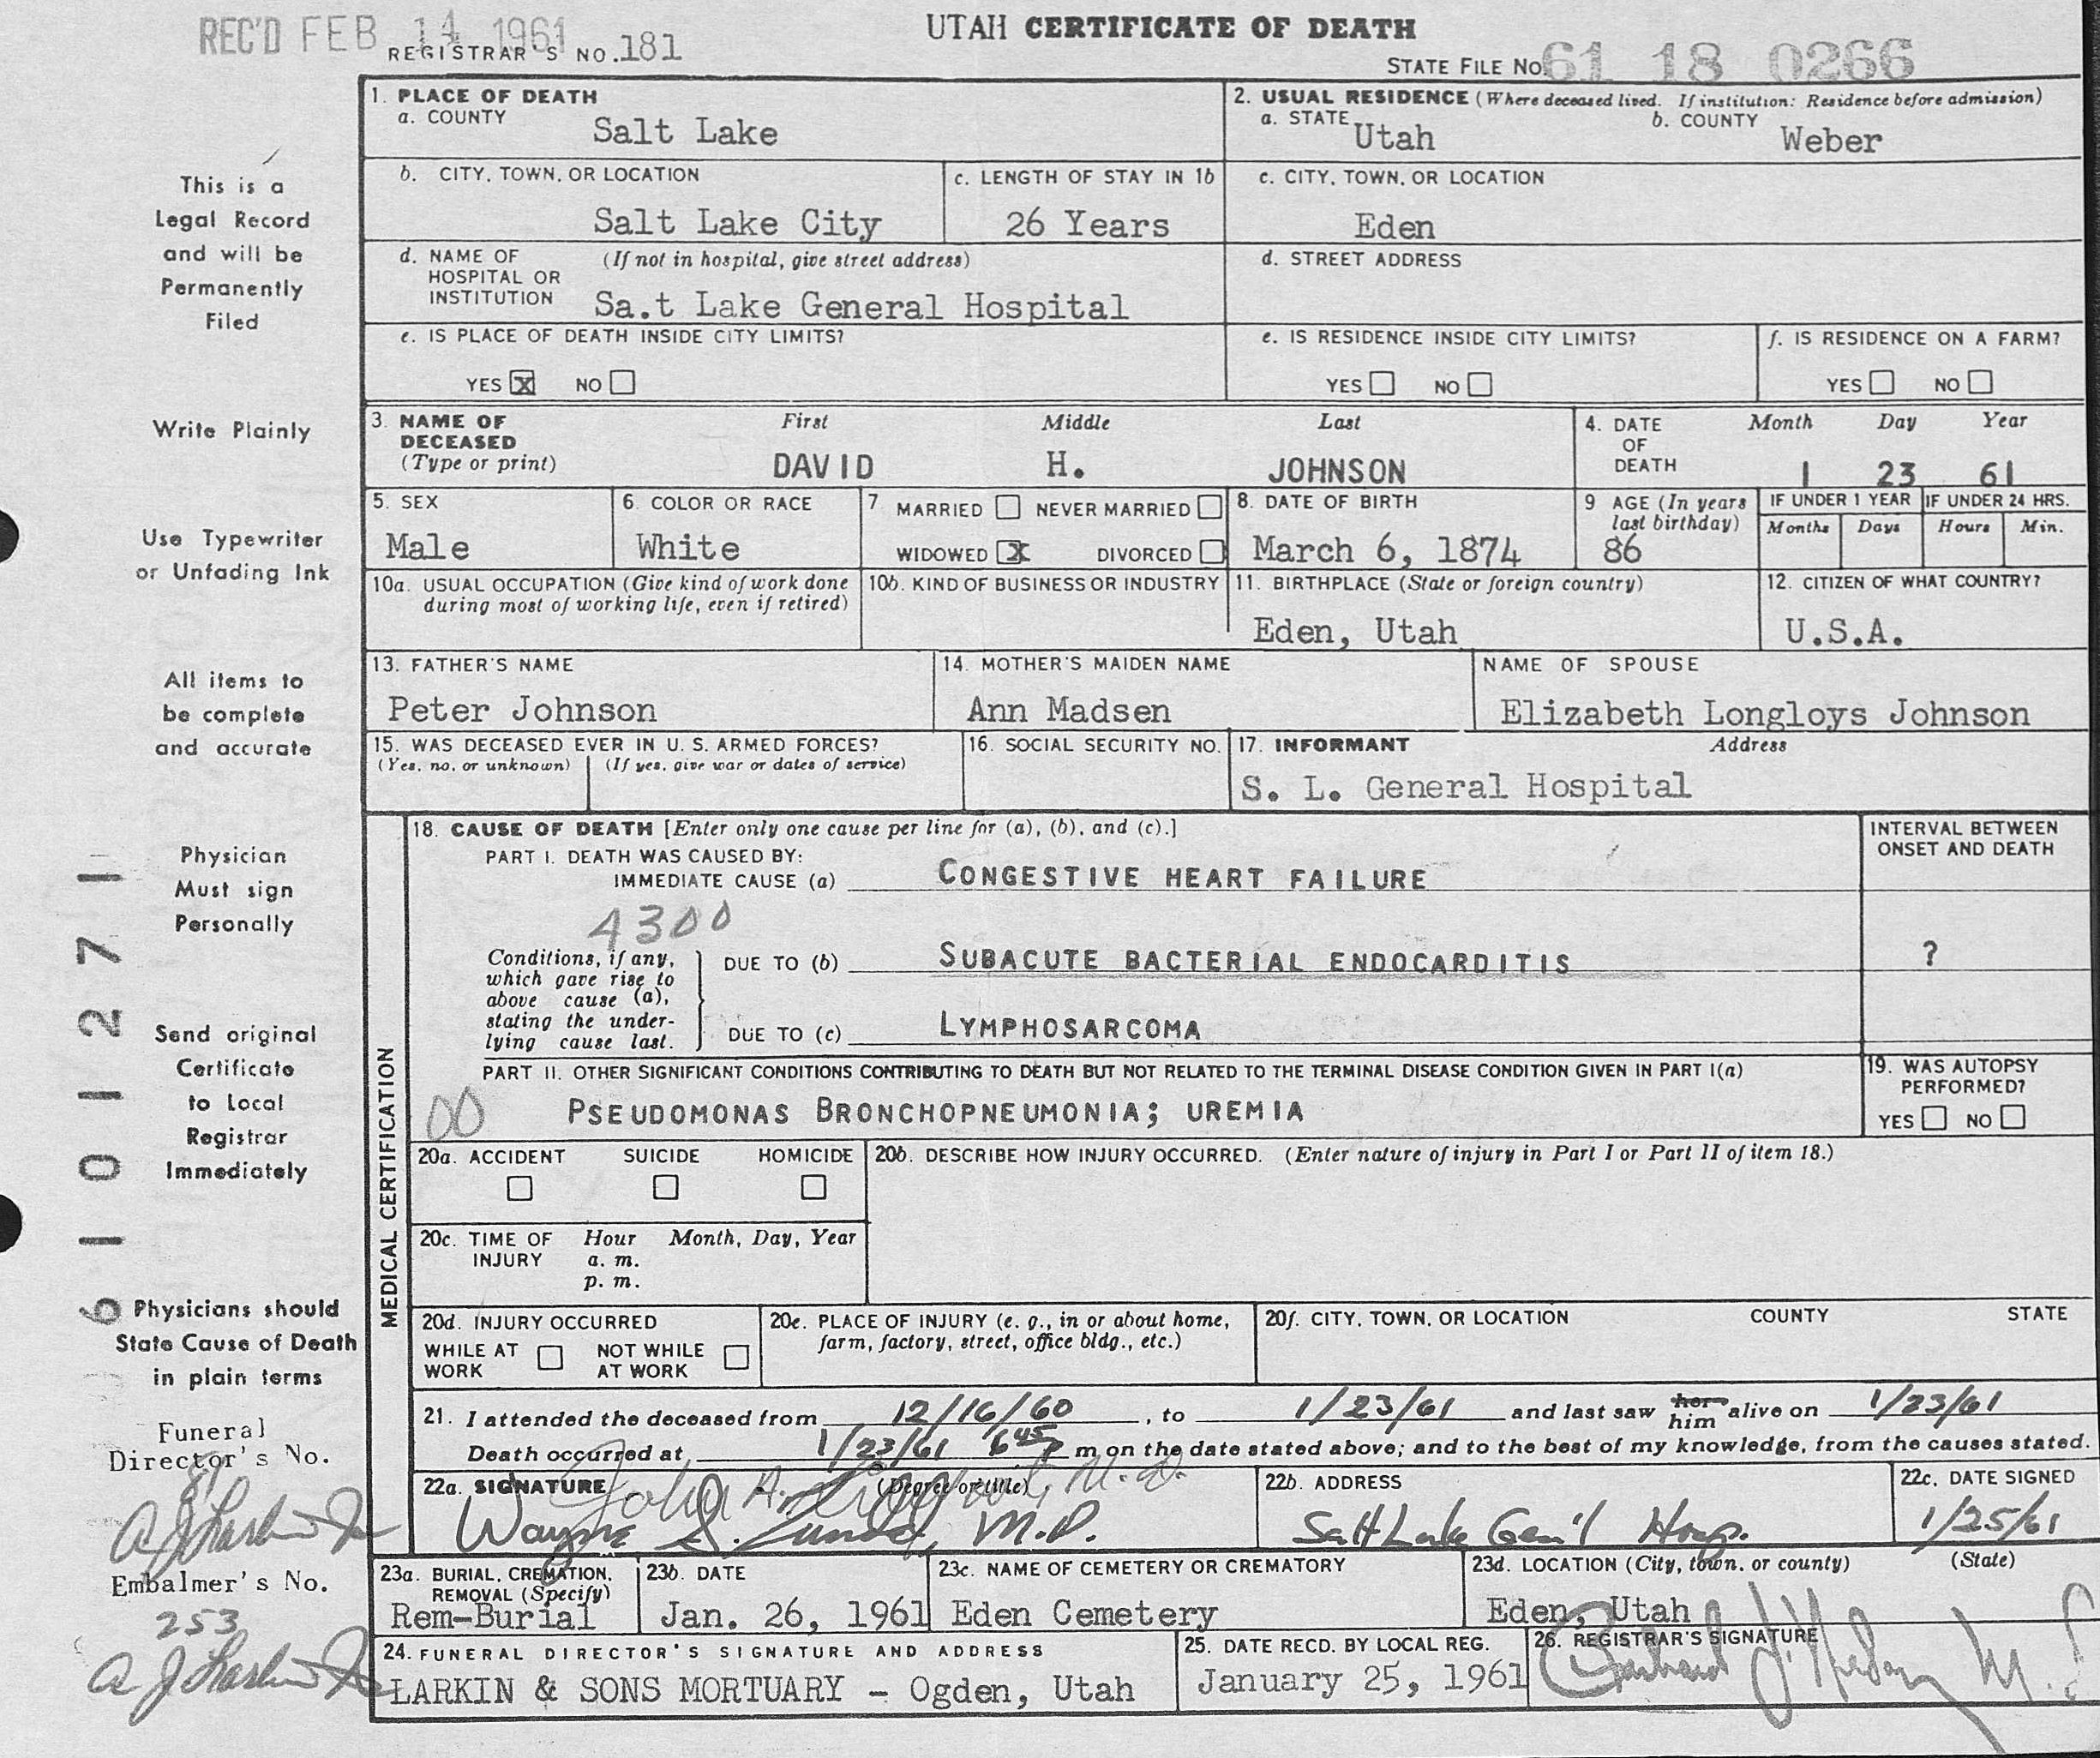 REC'D FEB 14 1961
REGISTRAR'S NO.181
UTAH CERTIFICATE OF DEATH
STATE FILE NO 61 18 0266
This is a
Legal Record
and will be
Permanently
Filed
Write Plainly
Use Typewriter
or Unfading Ink
All items to
be complete
and accurate
Physician
Must sign
Personally
Send original
Certificate
to Local
Registrar
Immediately
Physicians should
State Cause of Death
in plain terms
Funeral
Director's No.
81
Embalmer's No.
253
61 01271
1. PLACE OF DEATH
a. COUNTY
Salt Lake
2. USUAL RESIDENCE (Where deceased lived. If institution: Residence before admission)
a. STATE Utah b. COUNTY Weber
b. CITY, TOWN, OR LOCATION
Salt Lake City
c. LENGTH OF STAY IN 1b
26 Years
c. CITY, TOWN, OR LOCATION
Eden
d. NAME OF HOSPITAL OR INSTITUTION (If not in hospital, give street address)
Sa.t Lake General Hospital
d. STREET ADDRESS
e. IS PLACE OF DEATH INSIDE CITY LIMITS?
YES X NO
e. IS RESIDENCE INSIDE CITY LIMITS?
YES NO
f. IS RESIDENCE ON A FARM?
YES NO
3. NAME OF DECEASED (Type or print)
First Middle Last
DAVID H. JOHNSON
4. DATE OF DEATH
Month Day Year
1 23 61
5. SEX
Male
6. COLOR OR RACE
White
7. MARRIED NEVER MARRIED
WIDOWED X DIVORCED
8. DATE OF BIRTH
March 6, 1874
9 AGE (In years last birthday)
86
IF UNDER 1 YEAR
Months Days
IF UNDER 24 HRS.
Hours Min.
10a. USUAL OCCUPATION (Give kind of work done during most of working life, even if retired)
10b. KIND OF BUSINESS OR INDUSTRY
11. BIRTHPLACE (State or foreign country)
Eden, Utah
12. CITIZEN OF WHAT COUNTRY?
U.S.A.
13. FATHER'S NAME
Peter Johnson
14. MOTHER'S MAIDEN NAME
Ann Madsen
NAME OF SPOUSE
Elizabeth Longloys Johnson
15. WAS DECEASED EVER IN U. S. ARMED FORCES?
(Yes, no, or unknown) (If yes, give war or dates of service)
16. SOCIAL SECURITY NO.
17. INFORMANT Address
S. L. General Hospital
MEDICAL CERTIFICATION
18. CAUSE OF DEATH [Enter only one cause per line for (a), (b), and (c).]
INTERVAL BETWEEN ONSET AND DEATH
PART I. DEATH WAS CAUSED BY:
IMMEDIATE CAUSE (a) CONGESTIVE HEART FAILURE
4300
Conditions, if any, which gave rise to above cause (a), stating the underlying cause last.
DUE TO (b) SUBACUTE BACTERIAL ENDOCARDITIS ?
DUE TO (c) LYMPHOSARCOMA
PART II. OTHER SIGNIFICANT CONDITIONS CONTRIBUTING TO DEATH BUT NOT RELATED TO THE TERMINAL DISEASE CONDITION GIVEN IN PART I(a)
00 PSEUDOMONAS BRONCHOPNEUMONIA; UREMIA
19. WAS AUTOPSY PERFORMED?
YES NO
20a. ACCIDENT SUICIDE HOMICIDE
20b. DESCRIBE HOW INJURY OCCURRED. (Enter nature of injury in Part I or Part II of item 18.)
20c. TIME OF INJURY Hour Month, Day, Year
a. m.
p. m.
20d. INJURY OCCURRED
WHILE AT WORK NOT WHILE AT WORK
20e. PLACE OF INJURY (e. g., in or about home, farm, factory, street, office bldg., etc.)
20f. CITY, TOWN, OR LOCATION COUNTY STATE
21. I attended the deceased from 12/16/60, to 1/23/61 and last saw her him alive on 1/23/61
Death occurred at 1/23/61 6 45 P m on the date stated above; and to the best of my knowledge, from the causes stated.
22a. SIGNATURE (Degree or title)
John A. M.D.
Wayne S. M.D.
22b. ADDRESS
Salt Lake Gen'l Hosp.
22c. DATE SIGNED
1/25/61
23a. BURIAL, CREMATION, REMOVAL (Specify)
Rem-Burial
23b. DATE
Jan. 26, 1961
23c. NAME OF CEMETERY OR CREMATORY
Eden Cemetery
23d. LOCATION (City, town, or county) (State)
Eden, Utah
24. FUNERAL DIRECTOR'S SIGNATURE AND ADDRESS
LARKIN & SONS MORTUARY - Ogden, Utah
25. DATE RECD. BY LOCAL REG.
January 25, 1961
26. REGISTRAR'S SIGNATURE